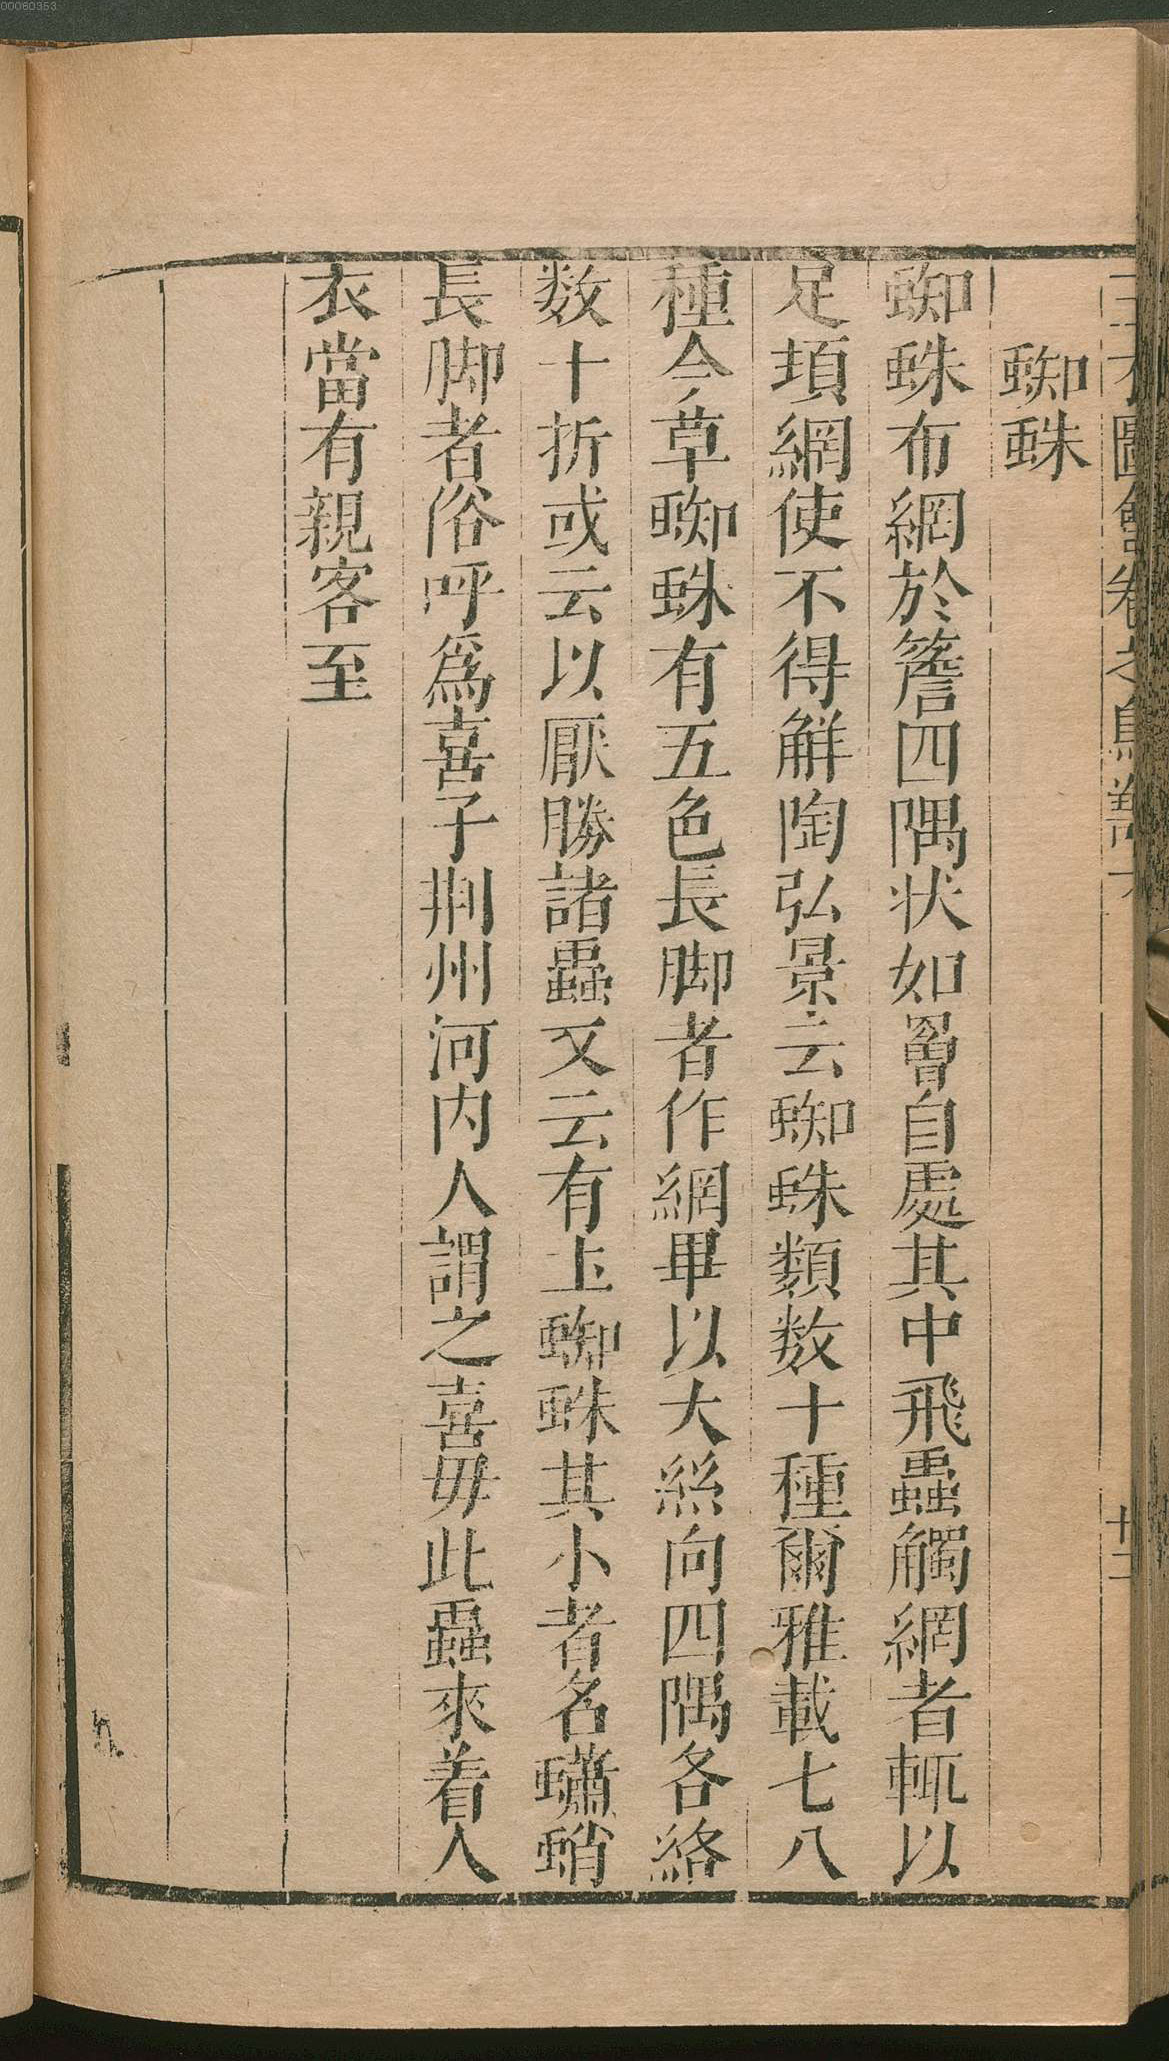 00060353
蜘蛛
蜘蛛布網於簷四隅状如罾自處其中飛蟲觸網者輒以
足頊網使不得觧陶弘景云蜘蛛類数十種爾雅載七八
種今草蜘蛛有五色長脚者作網畢以大絲向四隅各絡
数十折或云以厭勝諸蟲又云有土蜘蛛其小者名蠨蛸
長脚者俗呼爲喜子荆州河内人謂之喜毋此蟲來着人
衣當有親客至